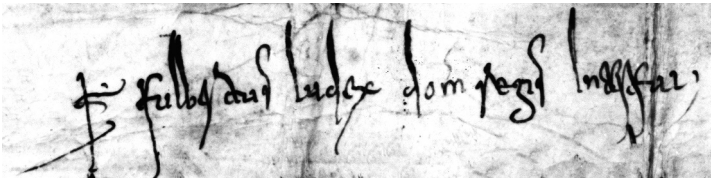 ✝ fulbertus Iudex dom regis Interfui